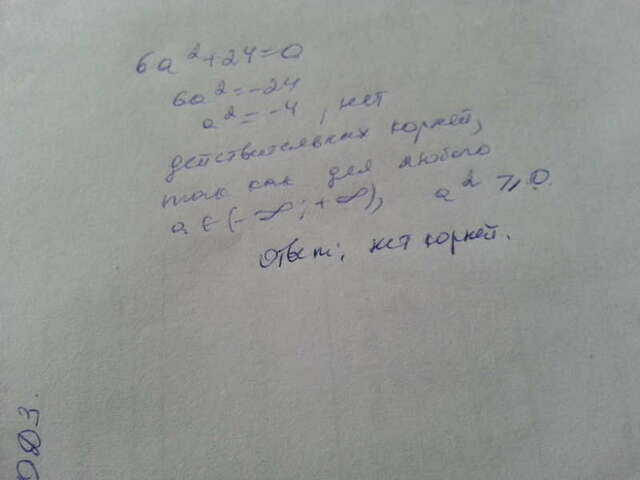 6a²+24=0
6a²=-24
a²=-4, нет
действительных корней,
так как для любого
a ∈ (-∞; +∞), a² ≥ 0.
Ответ: нет корней.